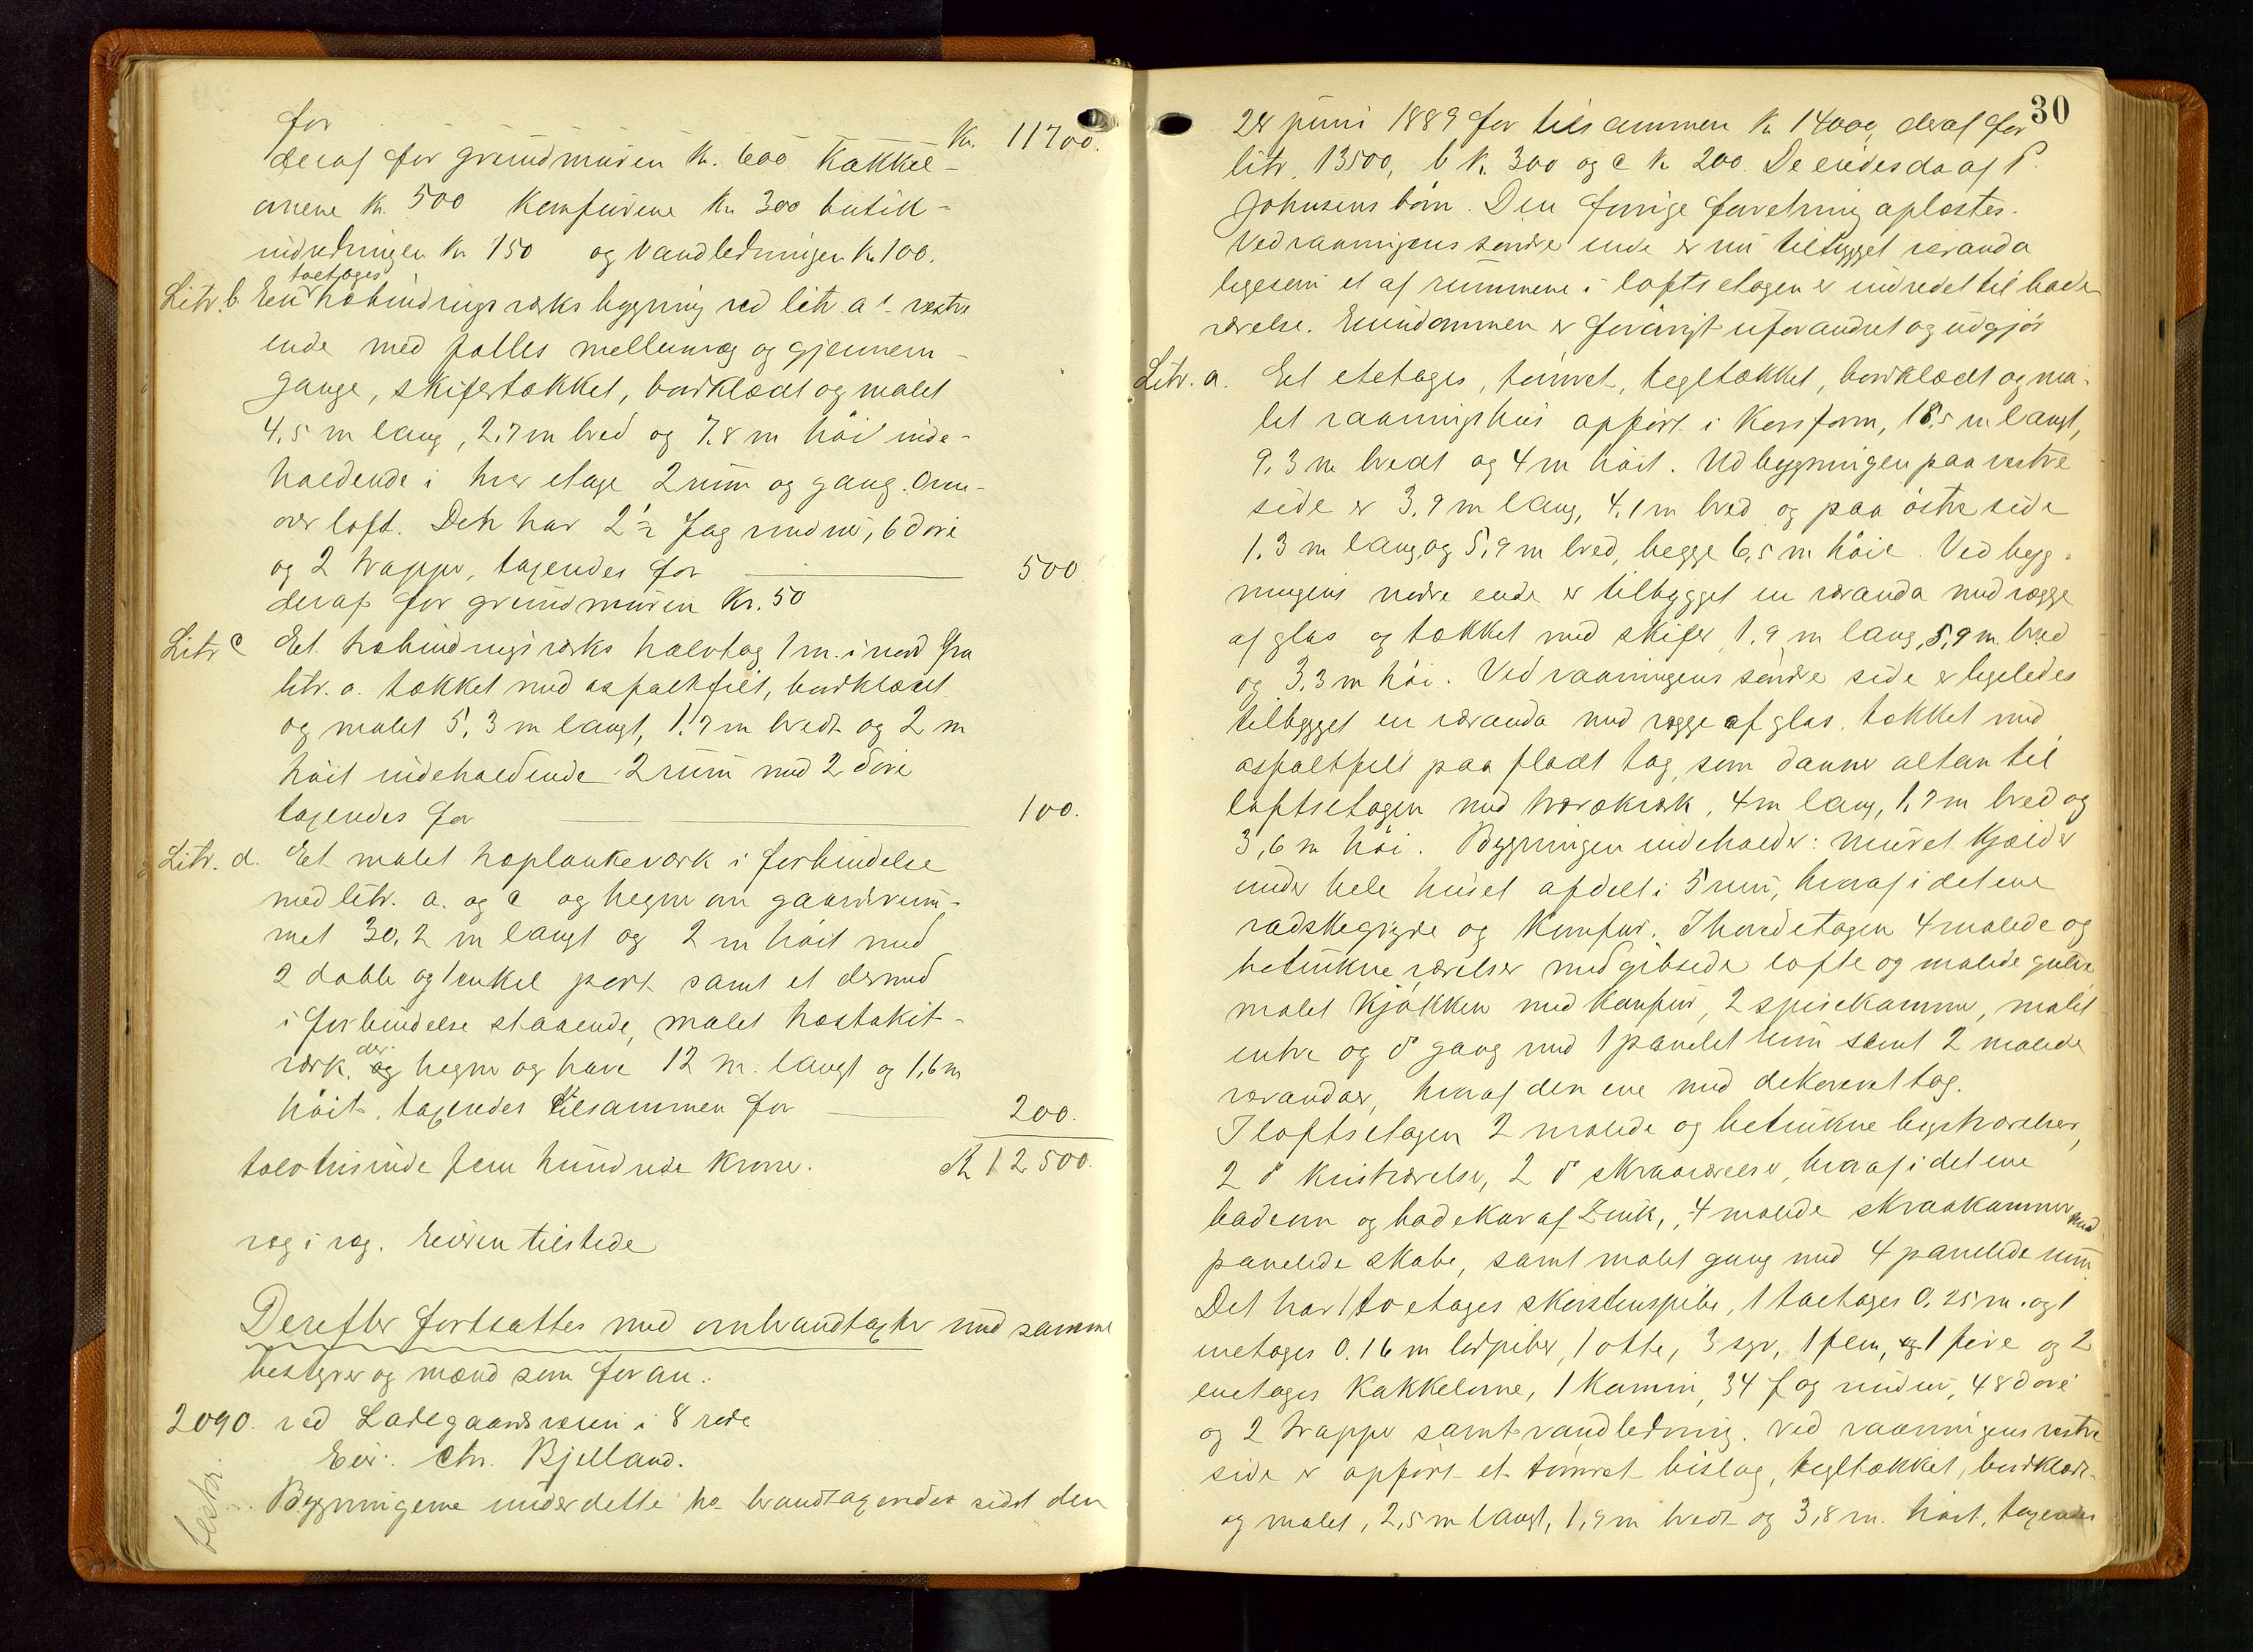 for Kr. 11700.
deraf for grundmuren Kr. 600 Kakkel-
ovnene Kr. 500 Komfurene Kr 300 butik-
indredningen Kr 150 og Vandledningen Kr 100.
toetages
Litr. b. En udbindingsverks bygning ved litr. a's vestre
ende med fælles mellemvæg og gjennem-
gange, skifertækket, bordklædt og malet
4,5 m lang, 2,7 m bred og 7,8 m høi inde-
holdende i hver etage 2 rum og gang. Oven-
over loft. Den har 2½ Fag vinduer, 6 døre
og 2 trapper, taxeredes for 500.
deraf for grundmuren Kr. 50
Litr c Et udbindingsverks halvtag 1 m. i nord fra
litr. a. tækket med asfaltfilt, bordklædt
og malet 5,3 m langt, 1,7 m bredt og 2 m
høit indeholdende 2 rum med 2 døre
taxeredes for 100.
Litr. d. Et malet træplankeverk i forbindelse
med litr. a. og c og hegner om gaardsrum-
met 30,2 m langt og 2 m høit med
2 doble og 1 enkel port samt et dermed
i forbindelse staaende, malet træstakit-
værk. der hegner og have 12 m. langt og 1,6 m
høit. taxeredes tilsammen for 200.
tolvtusinde fem hundrede kroner. Kr 12500.
væg i væg. Eieren tilstede
Derefter fortsattes med ombrandtaxter med samme
bestyrer og mænd som foran.
2090. ved Ladegaardsveien i 8 rode
Eier: Chr. Bjelland.
Bygningerne under dette No brandtaxeredes sidst den
30
28 juni 1889 for tilsammen Kr 14000, deraf for
litr. 13500, b Kr. 300 og c Kr 200. De eiedes da af P.
Johnsens børn. Den forrige forretning oplæstes.
Ved vaaningens søndre ende er nu tilbygget veranda
ligesom et af rummene i loftsetagen er indredet til bade-
værelse. Eiendommen er forøvrigt uforandret og udgjør
Litr. a. Et etetages, tømret, tegltækket, bordklædt og ma-
let vaaningshus opført i Korsform, 18,5 m langt,
9,3 m bredt og 4 m høit. Udbygningen paa vestre
side er 3,9 m lang, 4,1 m bred og paa østre side
1,3 m lang og 5,9 m bred, begge 6,5 m høie. Ved byg-
ningens nordre ende er tilbygget en veranda med vægge
af glas og tækket med skifer, 1,9 m lang, 5,9 m. bred
og 3,3 m høi. Ved vaaningens søndre side er ligeledes
tilbygget en veranda med vægge af glas. tækket med
asfaltfilt paa fladt tag, som danner altan til
loftsetagen med trærækverk, 4 m lang, 1,7 m bred og
3,6 m høi. Bygningen indeholder: muret Kjælder
under hele huset afdelt i 5 rum, hvoraf i det ene
vadskegryde og Komfur. I hovedetagen 4 malede og
betrukne værelser med gibsede lofte og malede gulve
malet Kjøkken med Komfur, 2 spisekammer, malet
entre og do gang med 1 panelet rum samt 2 malede
verandaer, hvoraf den ene med dekoreret tag.
I loftsetagen 2 malede og betrukne kvistværelser,
2 do kvistværelser, 2 do skraaværelser, hvoraf i det ene
badeovn og badekar af Zink, 4 malede skraakammer med
panelede skabe, samt malet gang med 4 panelede rum
Det har 1 toetages skorstenspibe, 1 toetages 0,25 m. og 1
enetages 0,16 m lerpiber, 1 otte, 3 syv, 1 fem, 1 fire og 2
enetages Kakkelovne, 1 Kamin, 34 fag vinduer, 48 døre
og 2 trapper samt vandledning. Ved vaaningens vestre
side er opført et tømret bislag, tegltækket, bordklædt
og malet, 2,5 m langt, 1,9 m bredt og 3,8 m. høit, taxeredes